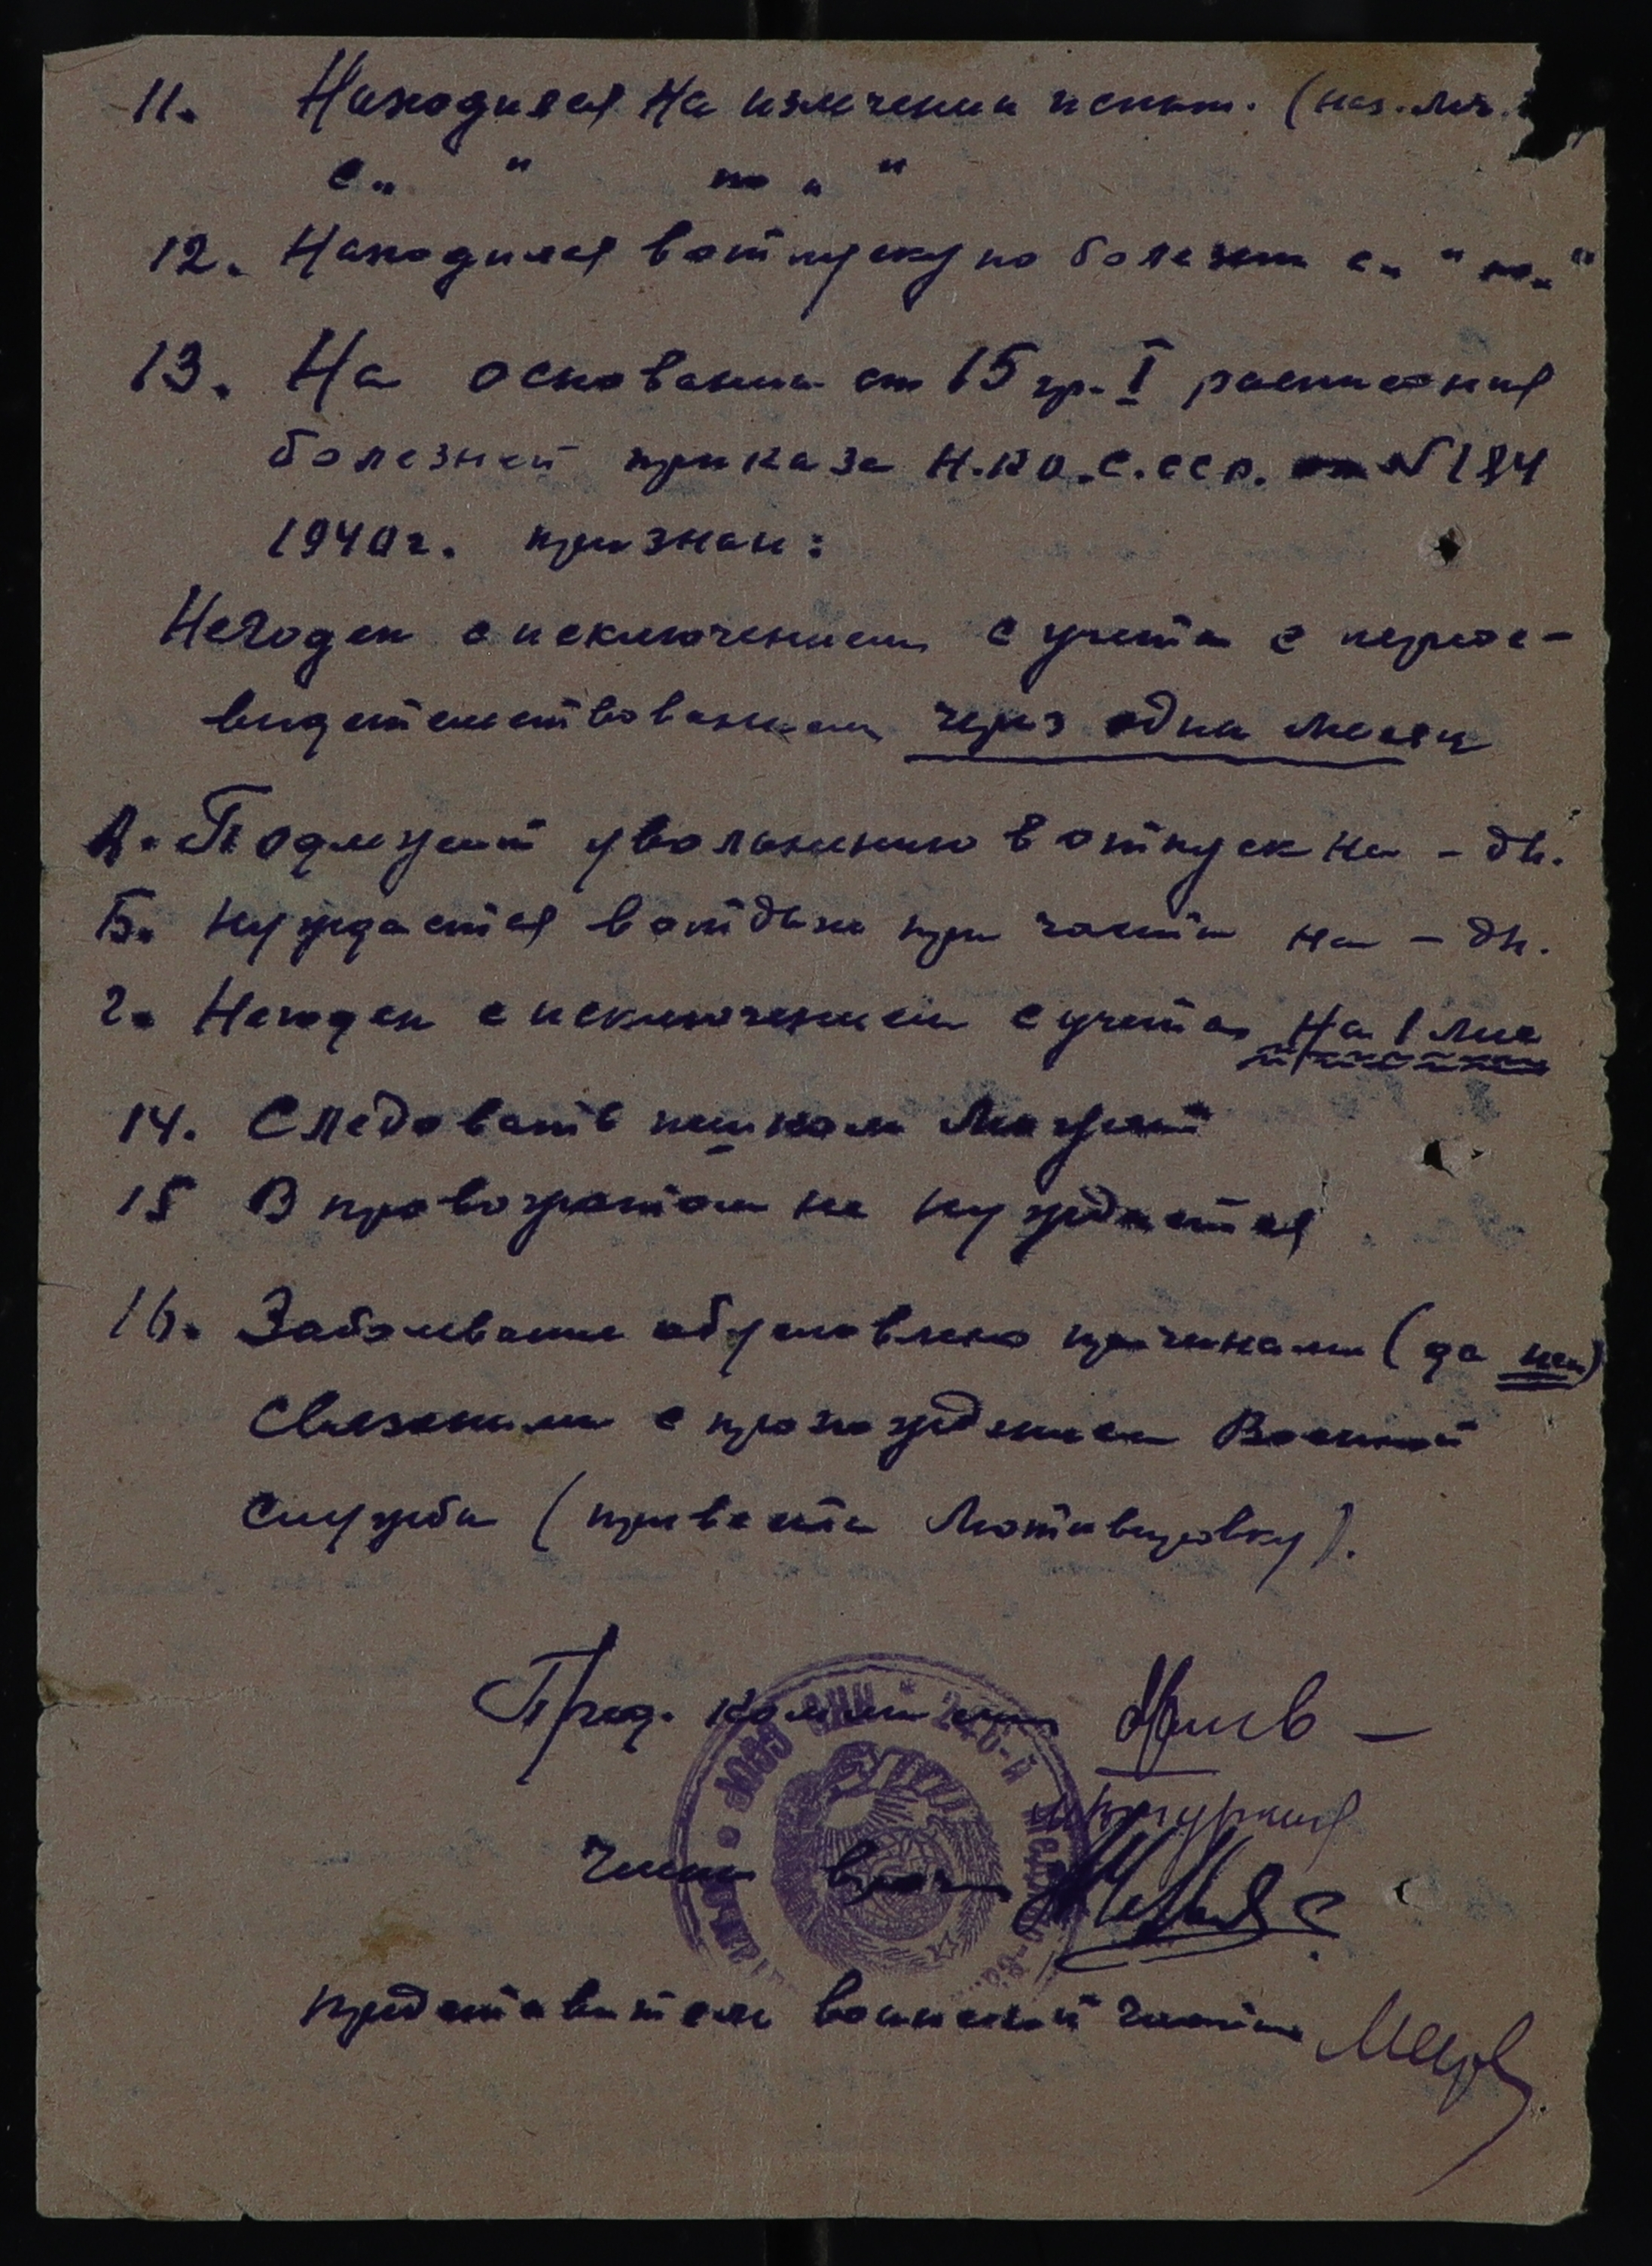 11. Находился на излечении испыт. (наз. леч.
с „ " по „ "
12. Находился в отпуску по болезни с „ " по „ "
13. На основании ст 15 гр. I расписания
болезней приказа Н.КО.С.ССР. № 184
1940г. признан:
Негоден с исключением с учета с переос-
видетельствованием через один месяц
А. Подлежит увольнению в отпуск на – дн.
Б. Нуждается в отдыхе при части на – дн.
г. Негоден с исключением с учета на 1 мес
14. Следовать пешком может
15 В провожатом не нуждается
16. Заболевание обусловлено причинами (да нет)
связаными с прохождением Военной
службы (привести мотивировку).
Пред. комиссии
Члены врач
представитель воинской части
НКО СССР * 246-й